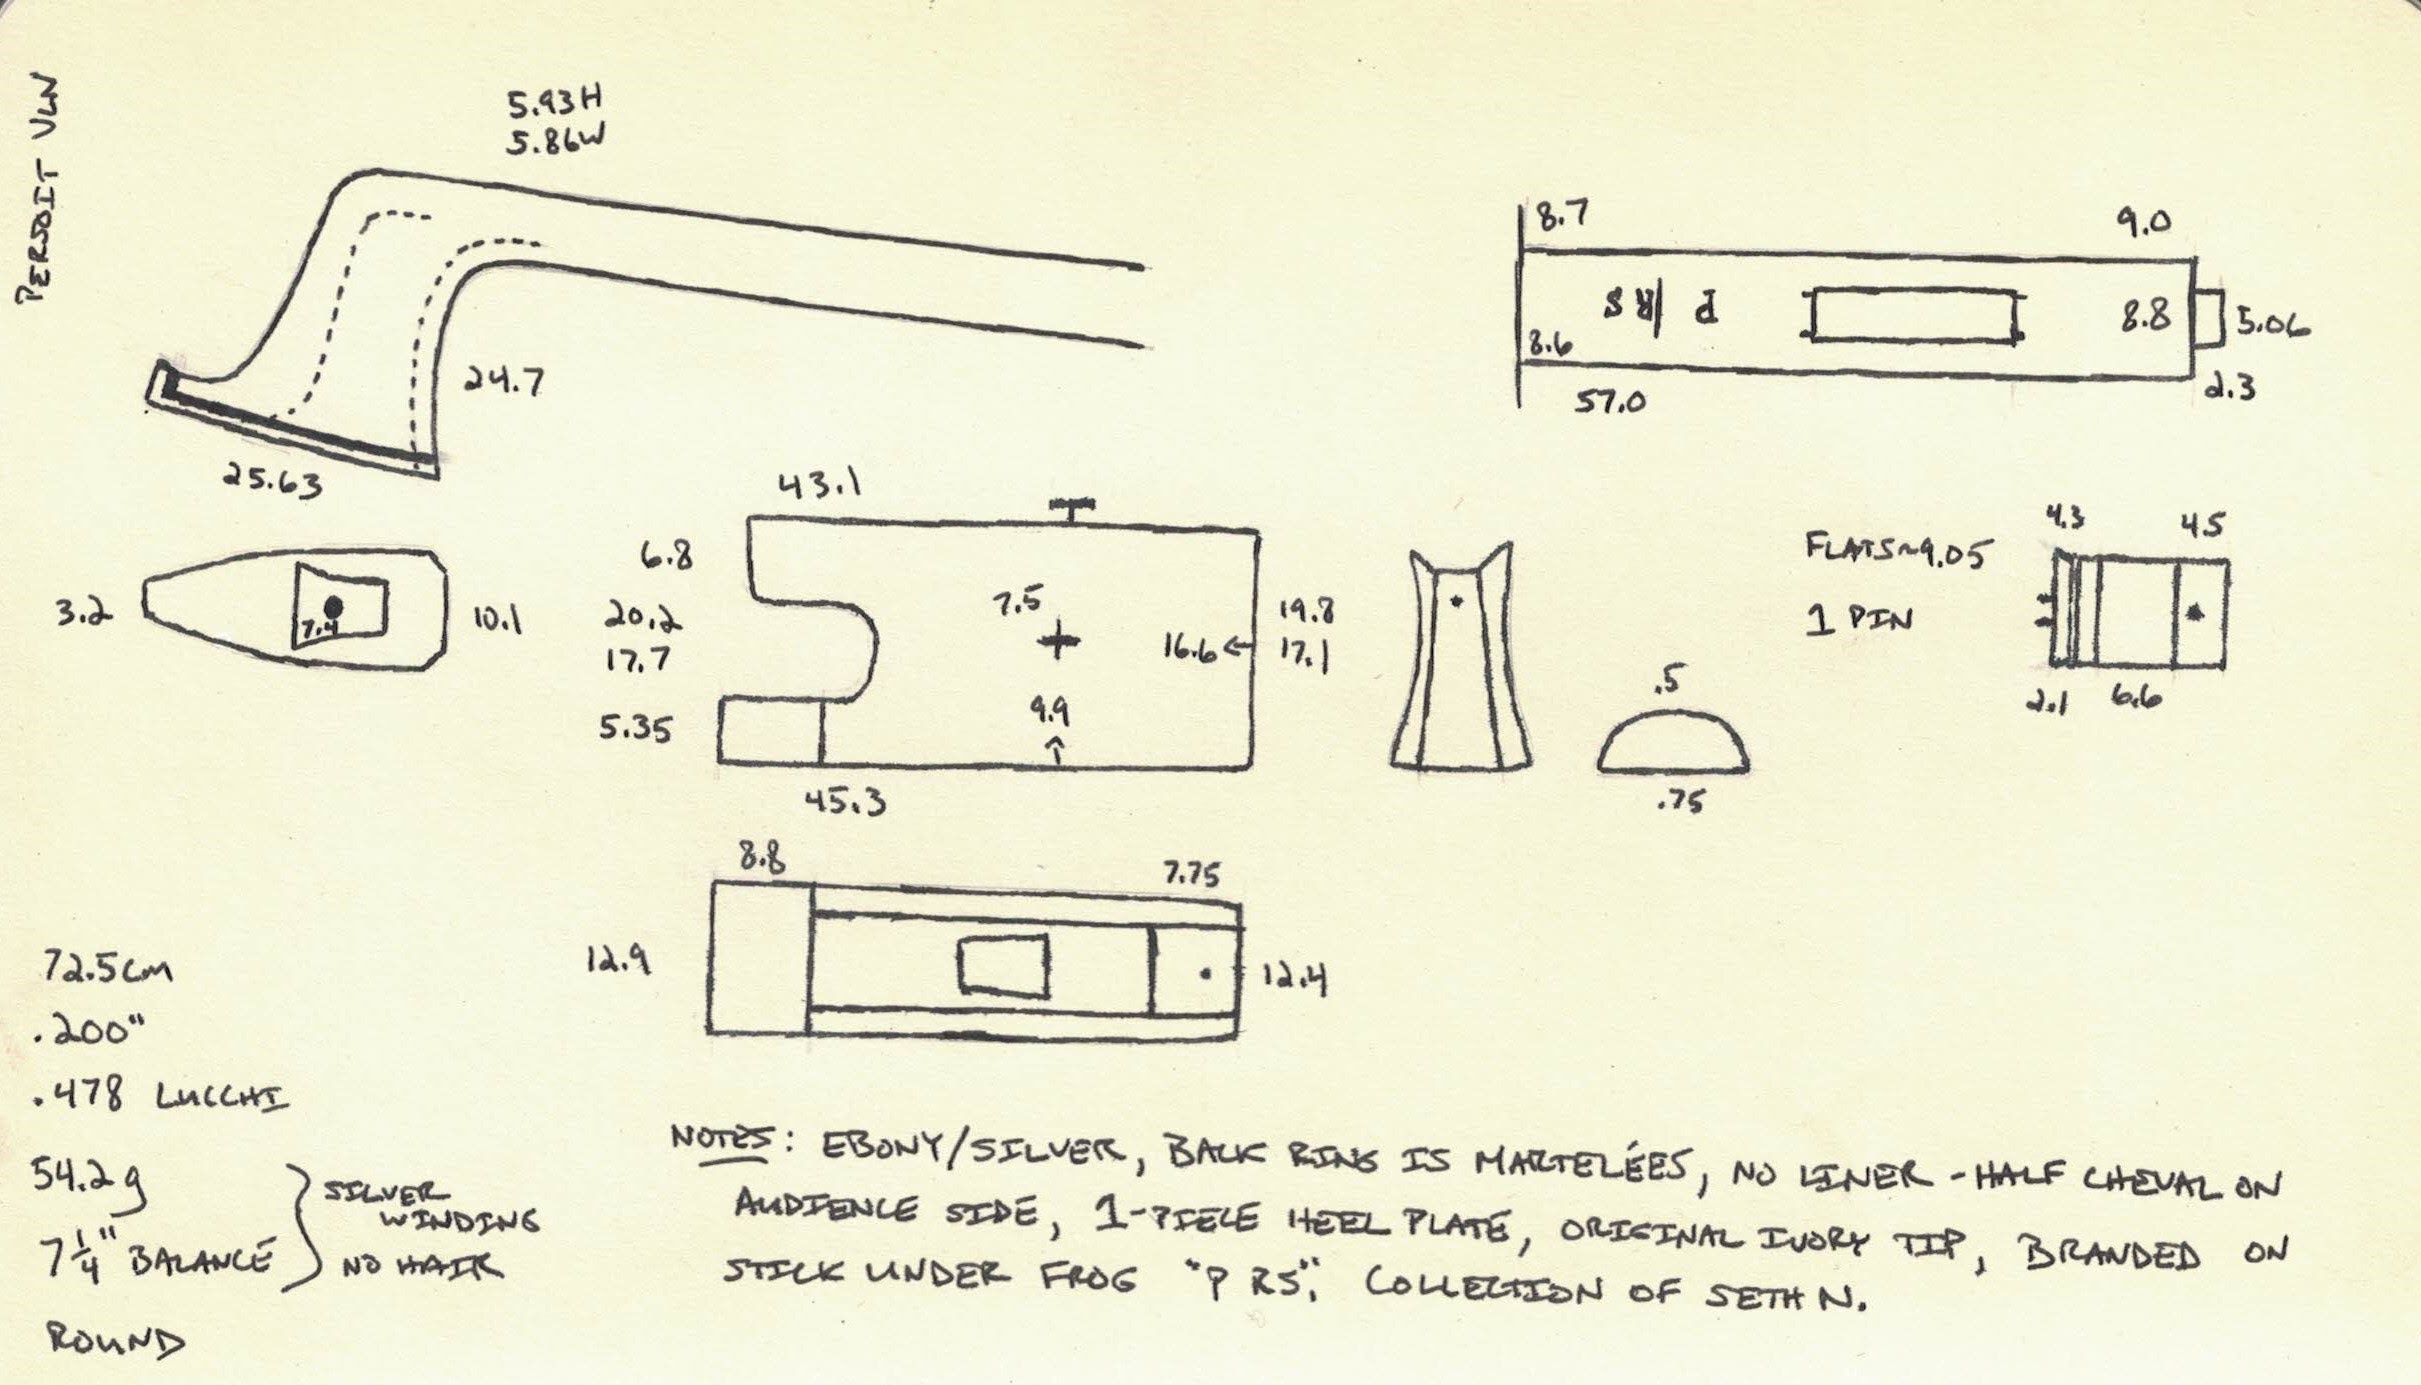 PERSOIT VLN
5.93H
5.86W
24.7
25.63
8.7
9.0
P RS
8.8
5.06
8.6
57.0
2.3
3.2
7.4
10.1
43.1
6.8
20.2
17.7
5.35
7.5
16.6
9.9
19.8
17.1
45.3
.5
.75
FLATS~9.05
1 PIN
4.3
4.5
2.1
6.6
8.8
7.75
12.9
12.4
72.5cm
.200"
.478 LUCCHI
54.2g
7 1/4" BALANCE
SILVER
WINDING
NO HAIR
ROUND
NOTES: EBONY/SILVER, BACK RING IS MARTELÉES, NO LINER - HALF CHEVAL ON
AUDIENCE SIDE, 1-PIECE HEEL PLATE, ORIGINAL IVORY TIP, BRANDED ON
STICK UNDER FROG "P RS". COLLECTION OF SETH N.